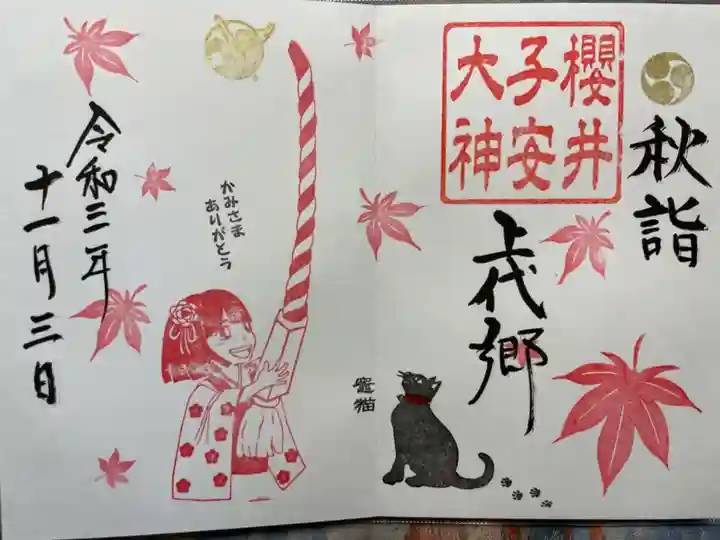 秋詣
櫻井
子安
大神
上代郷
竈猫
かみさま
ありがとう
令和三年
十一月三日